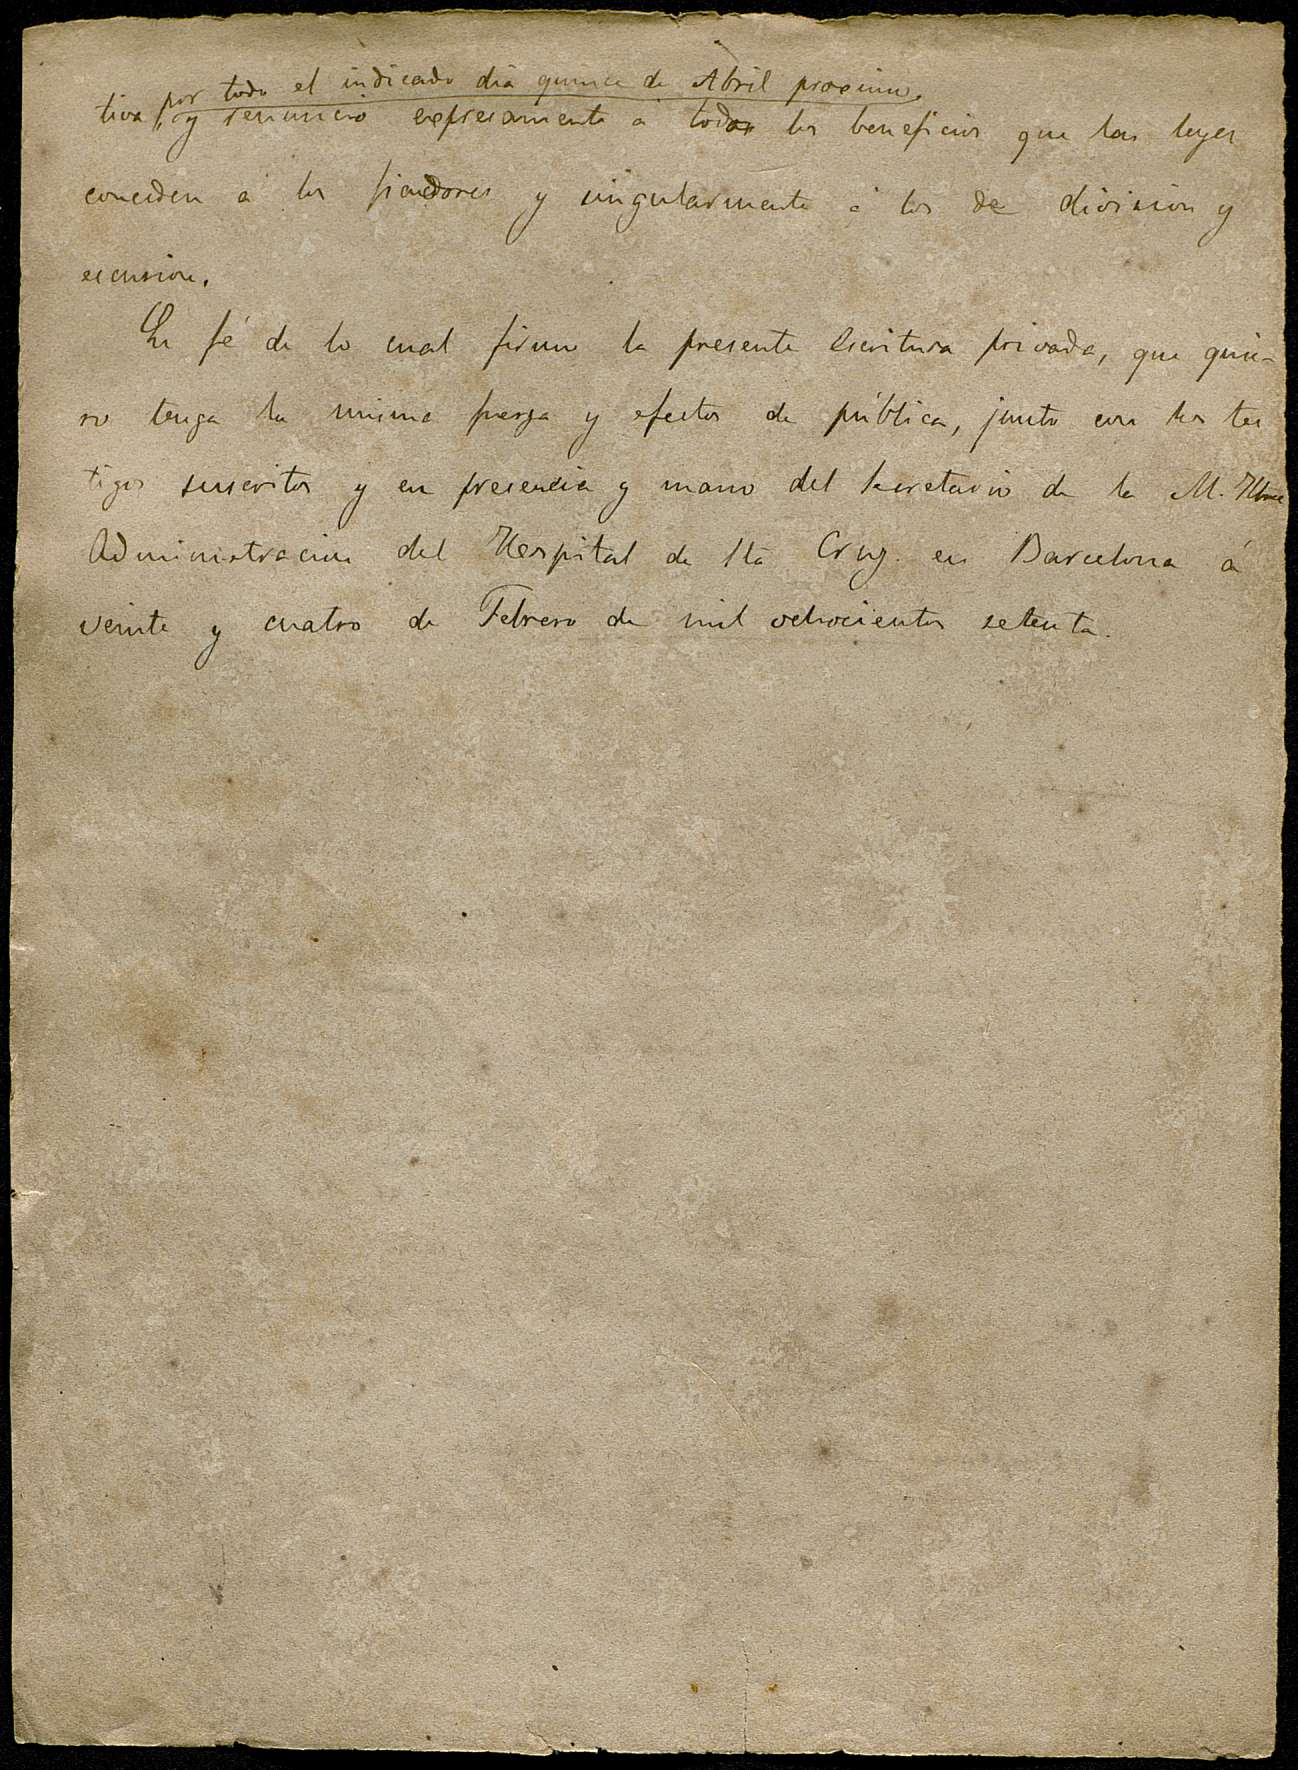 por todo el indicado dia quince de Abril procsimo,
tiva, y renuncio expresamente á todos los beneficios que las leyes
conceden á los fiadores y singularmente á los de division y
escusion.
En fé de lo cual firmo la presente Escritura privada, que quie-
ro tenga la misma fuerza y efectos de pública, junto con los tes
tigos suscritos y en presencia y mano del Secretario de la M. Iltre
Administracion del Hospital de Sta Cruz. en Barcelona á
veinte y cuatro de Febrero de mil ochocientos setenta.